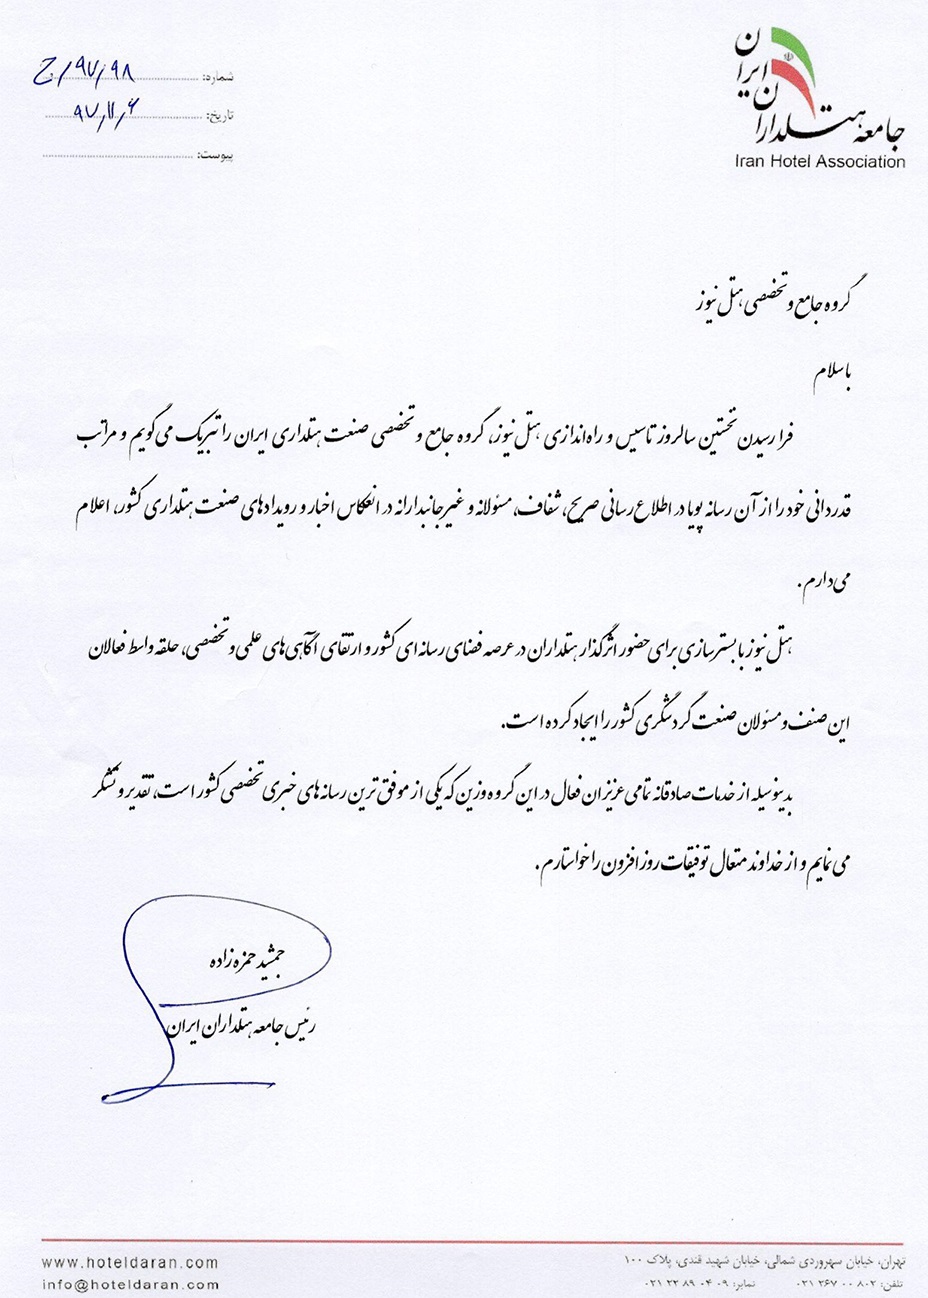 جامعه هتلداران ایران
Iran Hotel Association
شماره: ۹۷/۹۸/ح
تاریخ: ۹۷/۱۱/۶
پیوست:
گروه جامع و تخصصی هتل نیوز
با سلام
فرا رسیدن نخستین سالروز تاسیس و راه‌اندازی هتل نیوز، گروه جامع و تخصصی صنعت هتلداری ایران را تبریک می‌گویم و مراتب
قدردانی خود را از آن رسانه پویا در اطلاع رسانی صریح، شفاف، مسئولانه و غیرجانبدارانه در انعکاس اخبار و رویدادهای صنعت هتلداری کشور، اعلام
می‌دارم.
هتل نیوز با بسترسازی برای حضور اثرگذار هتلداران در عرصه فضای رسانه ای کشور و ارتقای آگاهی‌های علمی و تخصصی، حلقه واسط فعالان
این صنف و مسئولان صنعت گردشگری کشور را ایجاد کرده است.
بدینوسیله از خدمات صادقانه تمامی عزیزان فعال در این گروه وزین که یکی از موفق ترین رسانه های خبری تخصصی کشور است، تقدیر و تشکر
می نمایم و از خداوند متعال توفیقات روزافزون را خواستارم.
جمشید حمزه زاده
رئیس جامعه هتلداران ایران
تهران، خیابان سهروردی شمالی، خیابان شهید قندی، پلاک ۱۰۰
تلفن: ۸۰۲ ۰۰ ۲۶۷ ۰۲۱ نمابر: ۰۹ ۰۴ ۸۹ ۲۲ ۰۲۱
www.hoteldaran.com
info@hoteldaran.com